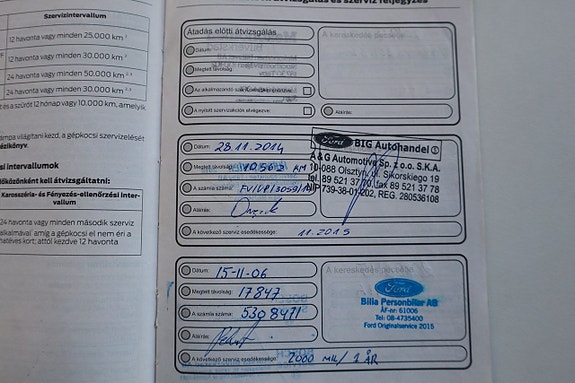 átvizsgálás és szerviz feljegyzés
Szervizintervallum
12 havonta vagy minden 25.000 km
12 havonta vagy minden 30.000 km
24 havonta vagy minden 50.000 km
24 havonta vagy minden 30.000 km
és a szűrőt 12 hónap vagy 10.000 km, amelyik
ámpa világítani kezd, a gépkocsi szervizelését
zikönyv.
si intervallumok
időközönként kell átvizsgáltatni:
Karosszéria- és Fényezés-ellenőrzési Inter-
vallum
24 havonta vagy minden második szerviz
alkalmával, amíg a gépkocsi el nem éri a
hatéves kort; attól kezdve 12 havonta
Átadás előtti átvizsgálás
Dátum:
Megtett távolság:
Az alkalmazandó
A nyitott szervizakciók elvégezve:
Aláírás:
Dátum: 28.11.2014
Megtett távolság: 10563 KM
A számla száma: FV/LP/3059/14
Aláírás:
A következő szerviz esedékessége: 11.2015
Ford BIG Autohandel
A & G Automotive Sp. z o.o. S.K.A.
10-088 Olsztyn, ul. Sikorskiego 19
tel. 89 521 37 70, fax 89 521 37 78
NIP 739-38-01-202, REG. 280536108
Dátum: 15-11-06
Megtett távolság: 17847
A számla száma: 5308471
Aláírás:
A következő szerviz esedékessége: 2000 MIL/1 ÅR
A kereskedés pecsétje
Ford
Bilia Personbilar AB
ÅF-nr: 61006
Tel: 08-4735400
Ford Originalservice 2015